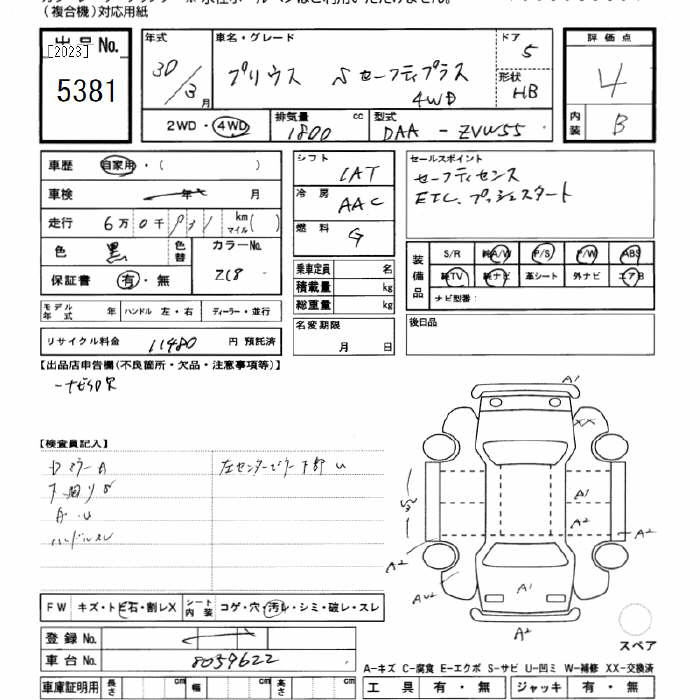 (複合機)対応用紙
出品No.
[2023]
5381
年式
30/3月
車名・グレード
プリウス Sセーフティプラス
4WD
ドア
5
形状
HB
評価点
4
内装
B
2WD・4WD
排気量
1800 cc
型式
DAA-ZVW55
車歴
自家用・( )
車検
年 月
走行
6万0千931 km マイル( )
色
黒
色替
カラーNo.
保証書
有・無
モデル年式 年
ハンドル 左・右
ディーラー・並行
リサイクル料金
11480 円 預託済
シフト
IAT
冷房
AAC
燃料
G
乗車定員 名
積載量 kg
総重量 kg
名変期限
月 日
セールスポイント
セーフティセンス
ETC、プッシュスタート
装備品
S/R
純A/W
P/S
P/W
ABS
純TV
純ナビ
革シート
外ナビ
エアB
ナビ型番:
後日品
【出品店申告欄(不良箇所・欠品・注意事項等)】
ーナビSD欠
【検査員記入】
左センターピラー下部 U
A・U
A1
XX
A1
A2
A2
A2
AU2
A1
A2
FW
キズ・トビ石・割レX
シート内装
コゲ・穴・汚レ・シミ・破レ・スレ
登録No.
車台No.
8059622
スペア
A-キズ C-腐食 E-エクボ S-サビ U-凹ミ W-補修 XX-交換済
車庫証明用
長さ cm
幅 cm
高さ cm
工具 有・無
ジャッキ 有・無